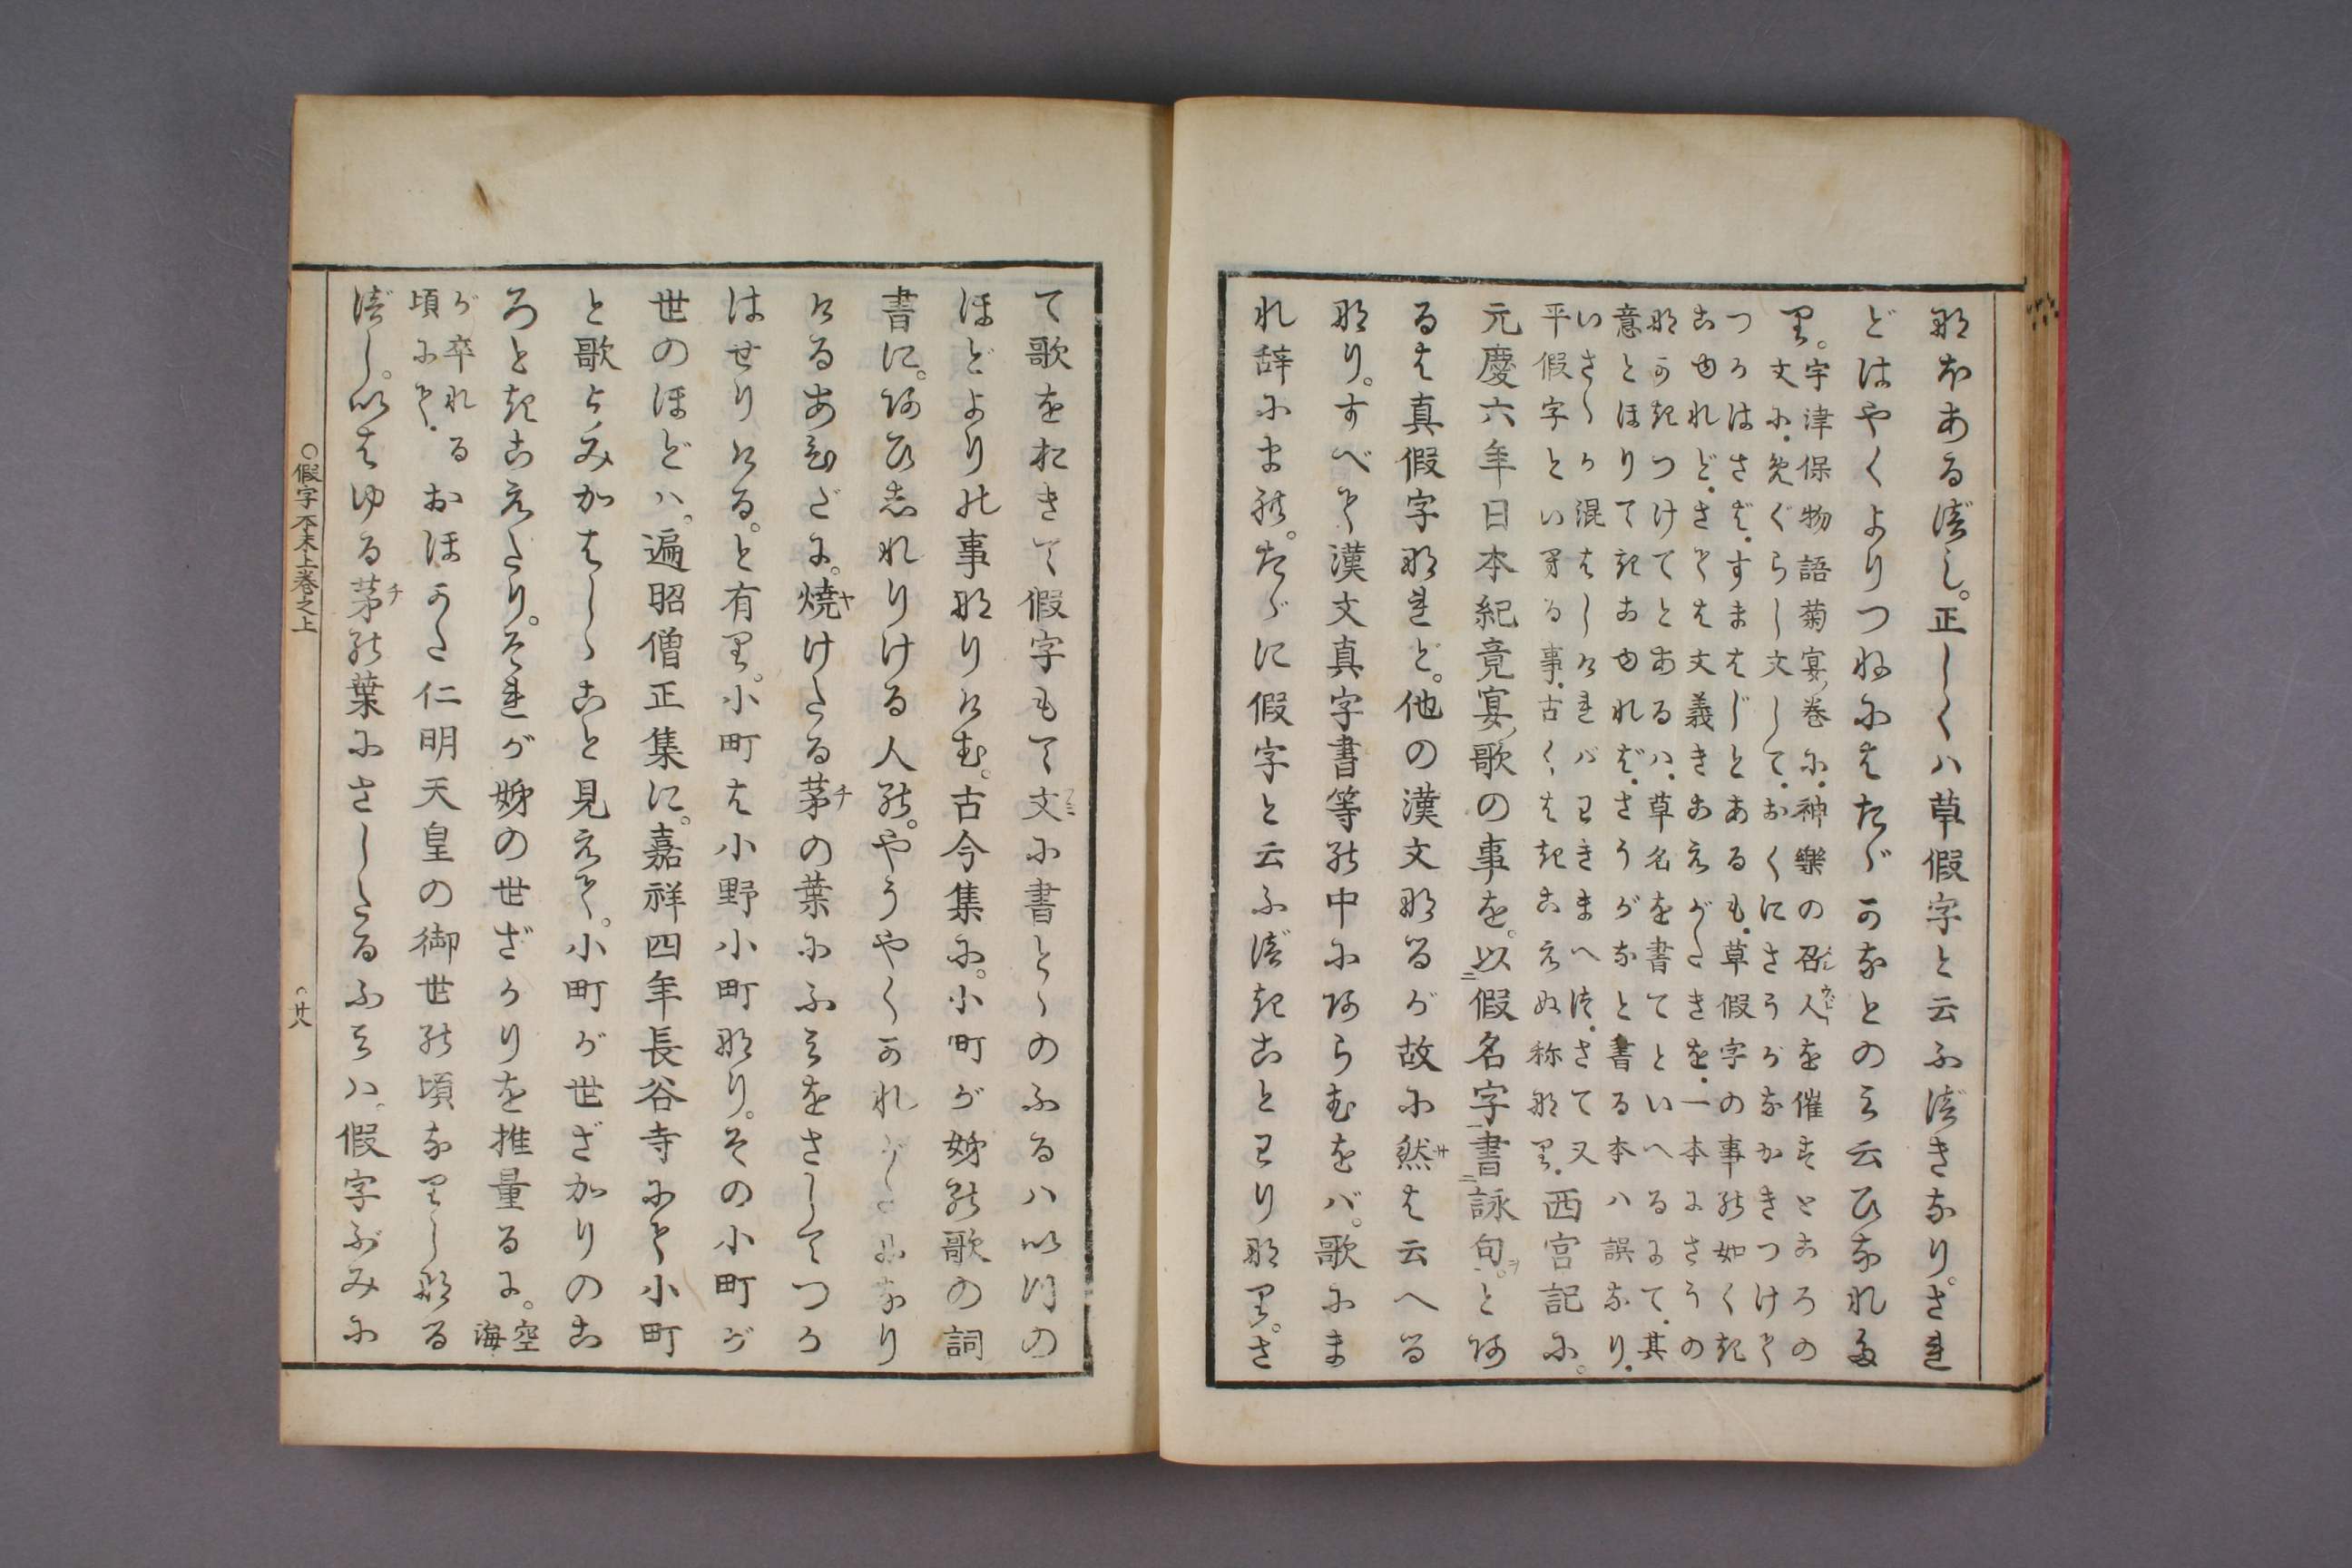 なほあるべし。正しくハ草假字と云ふべきなり。され
どはやくよりつねにはたゞかなとのみ云ひなれた
り。宇津保物語菊宴ノ巻に、神樂の召人を催すところの
文に、めぐらし文して、おくにさうがなかきつけて
つかはさば、すまはじとあるも、草假字の事の如くき
こゆれど、さては文義きこえがたきを、一本にさうの
なかきつけてとあるハ、草名を書てといへるにて、其
意とほりてきこゆれば、さうがなと書る本ハ誤なり、
いさゝか混はしけれバわきまへつ、さて又
平假字といふる事、古くはきこえぬ称なり、西宮記に。
元慶六年日本紀竟宴ノ歌の事を。以假名字書詠句。とあ
るは真假字なれど。他の漢文なるが故に然は云へる
なり。すべて漢文真字書等の中にあらむをバ。歌にま
れ辞にまれ。たゞに假字と云ふべきことわりなり。さ
て歌をおきて假字もて文に書とゝのふるハいつの
ほどよりの事なりけむ。古今集に。小町が姉の歌の詞
書に。あひしれりける人の。やうやくかれがたになり
けるあひだに。焼けたる茅の葉にふみをさしてつか
はせりける。と有り。小町は小野小町なり。その小町が
世のほどハ。遍昭僧正集に。嘉祥四年長谷寺にて小町
と歌よみかはしゝこと見えて。小町が世ざかりのこ
ろときこえたり。それが姉の世ざかりを推量るに。空海
が卒れる
頃にて、おほかた仁明天皇の御世の頃なりしなる
べし。いはゆる茅の葉にさしたるふみハ。假字ぶみに
○假字本末上巻之上
廿八